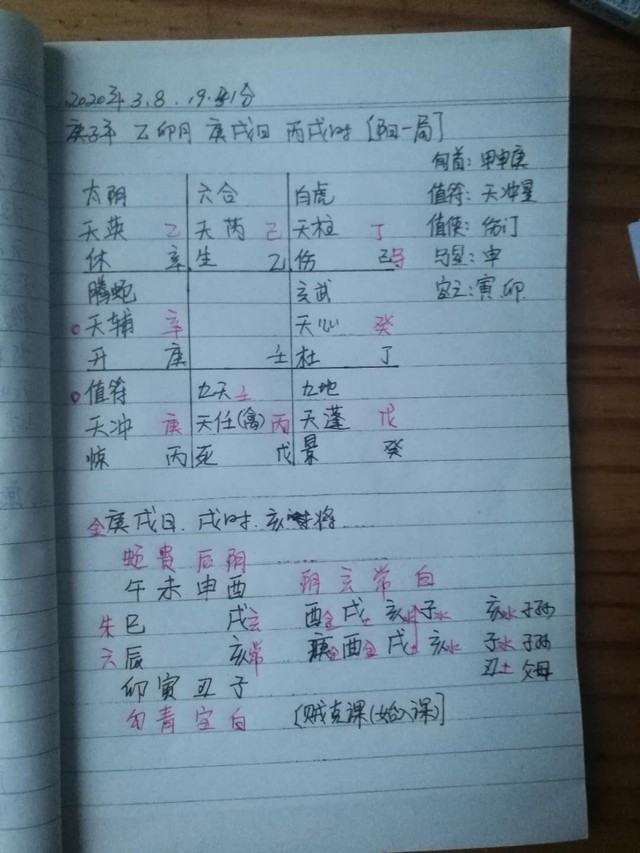 2020年3.8.19.41分
庚子年 乙卯月 庚戌日 丙戌时 [阳一局]
旬首：甲申庚
太阴 六合 白虎 值符：天冲星
天英 乙 天芮 己 天柱 丁 值使：伤门
休 辛 生 乙 伤 己 马 马星：申
腾蛇 玄武 空亡：寅.卯
天辅 辛 天心 癸
开 庚 壬 杜 丁
值符 九天 壬 九地
天冲 庚 天任(禽) 丙 天蓬 戊
惊 丙 死 戊 景 癸
金庚戌日.戌时.亥将
蛇 贵 后 阴
午 未 申 酉 阴 玄 常 白
朱 巳 戌 玄 酉金 戌土 亥水 子水 亥水 子孙
六 辰 亥 常 庚金 酉金 戌土 亥水 子水 子孙
卯 寅 丑 子 丑土 父母
勾 青 空 白 [贼克课(始入课)]